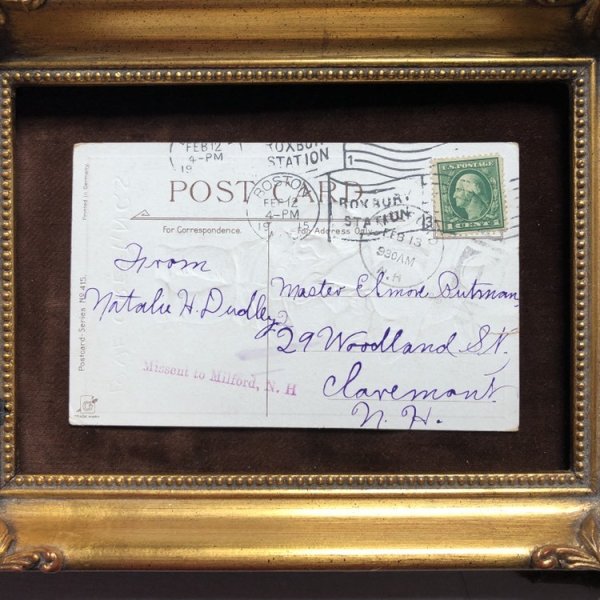 FEB 12
4-PM
19
ROXBURY
STATION
1
POST CARD
BOSTON
FEB 12
4-PM
19 15
ROXBURY
STATION
13
U.S. POSTAGE
1 CENT 1
FEB 13
930AM
N.H
For Correspondence.
For Address Only.
Printed in Germany.
From
Natalie H. Dudley
Master Elmore Putman
29 Woodland St,
Claremont
N. H.
Missent to Milford, N. H
Postcard-Series No 415.
TRADE MARK